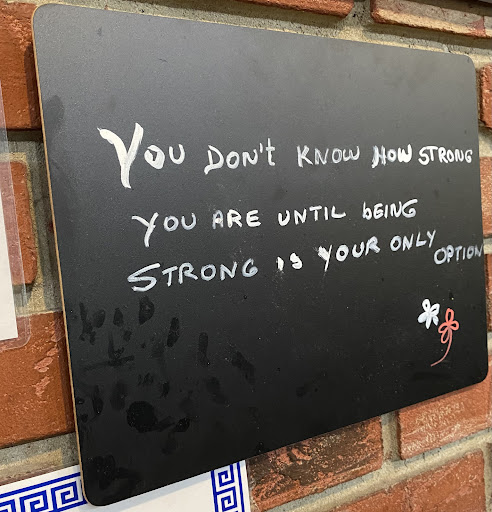 YOU DON't KNOW HOW STRONG
YOU ARE UNTIL bEING
STRONG IS YOUR ONLY OPTION